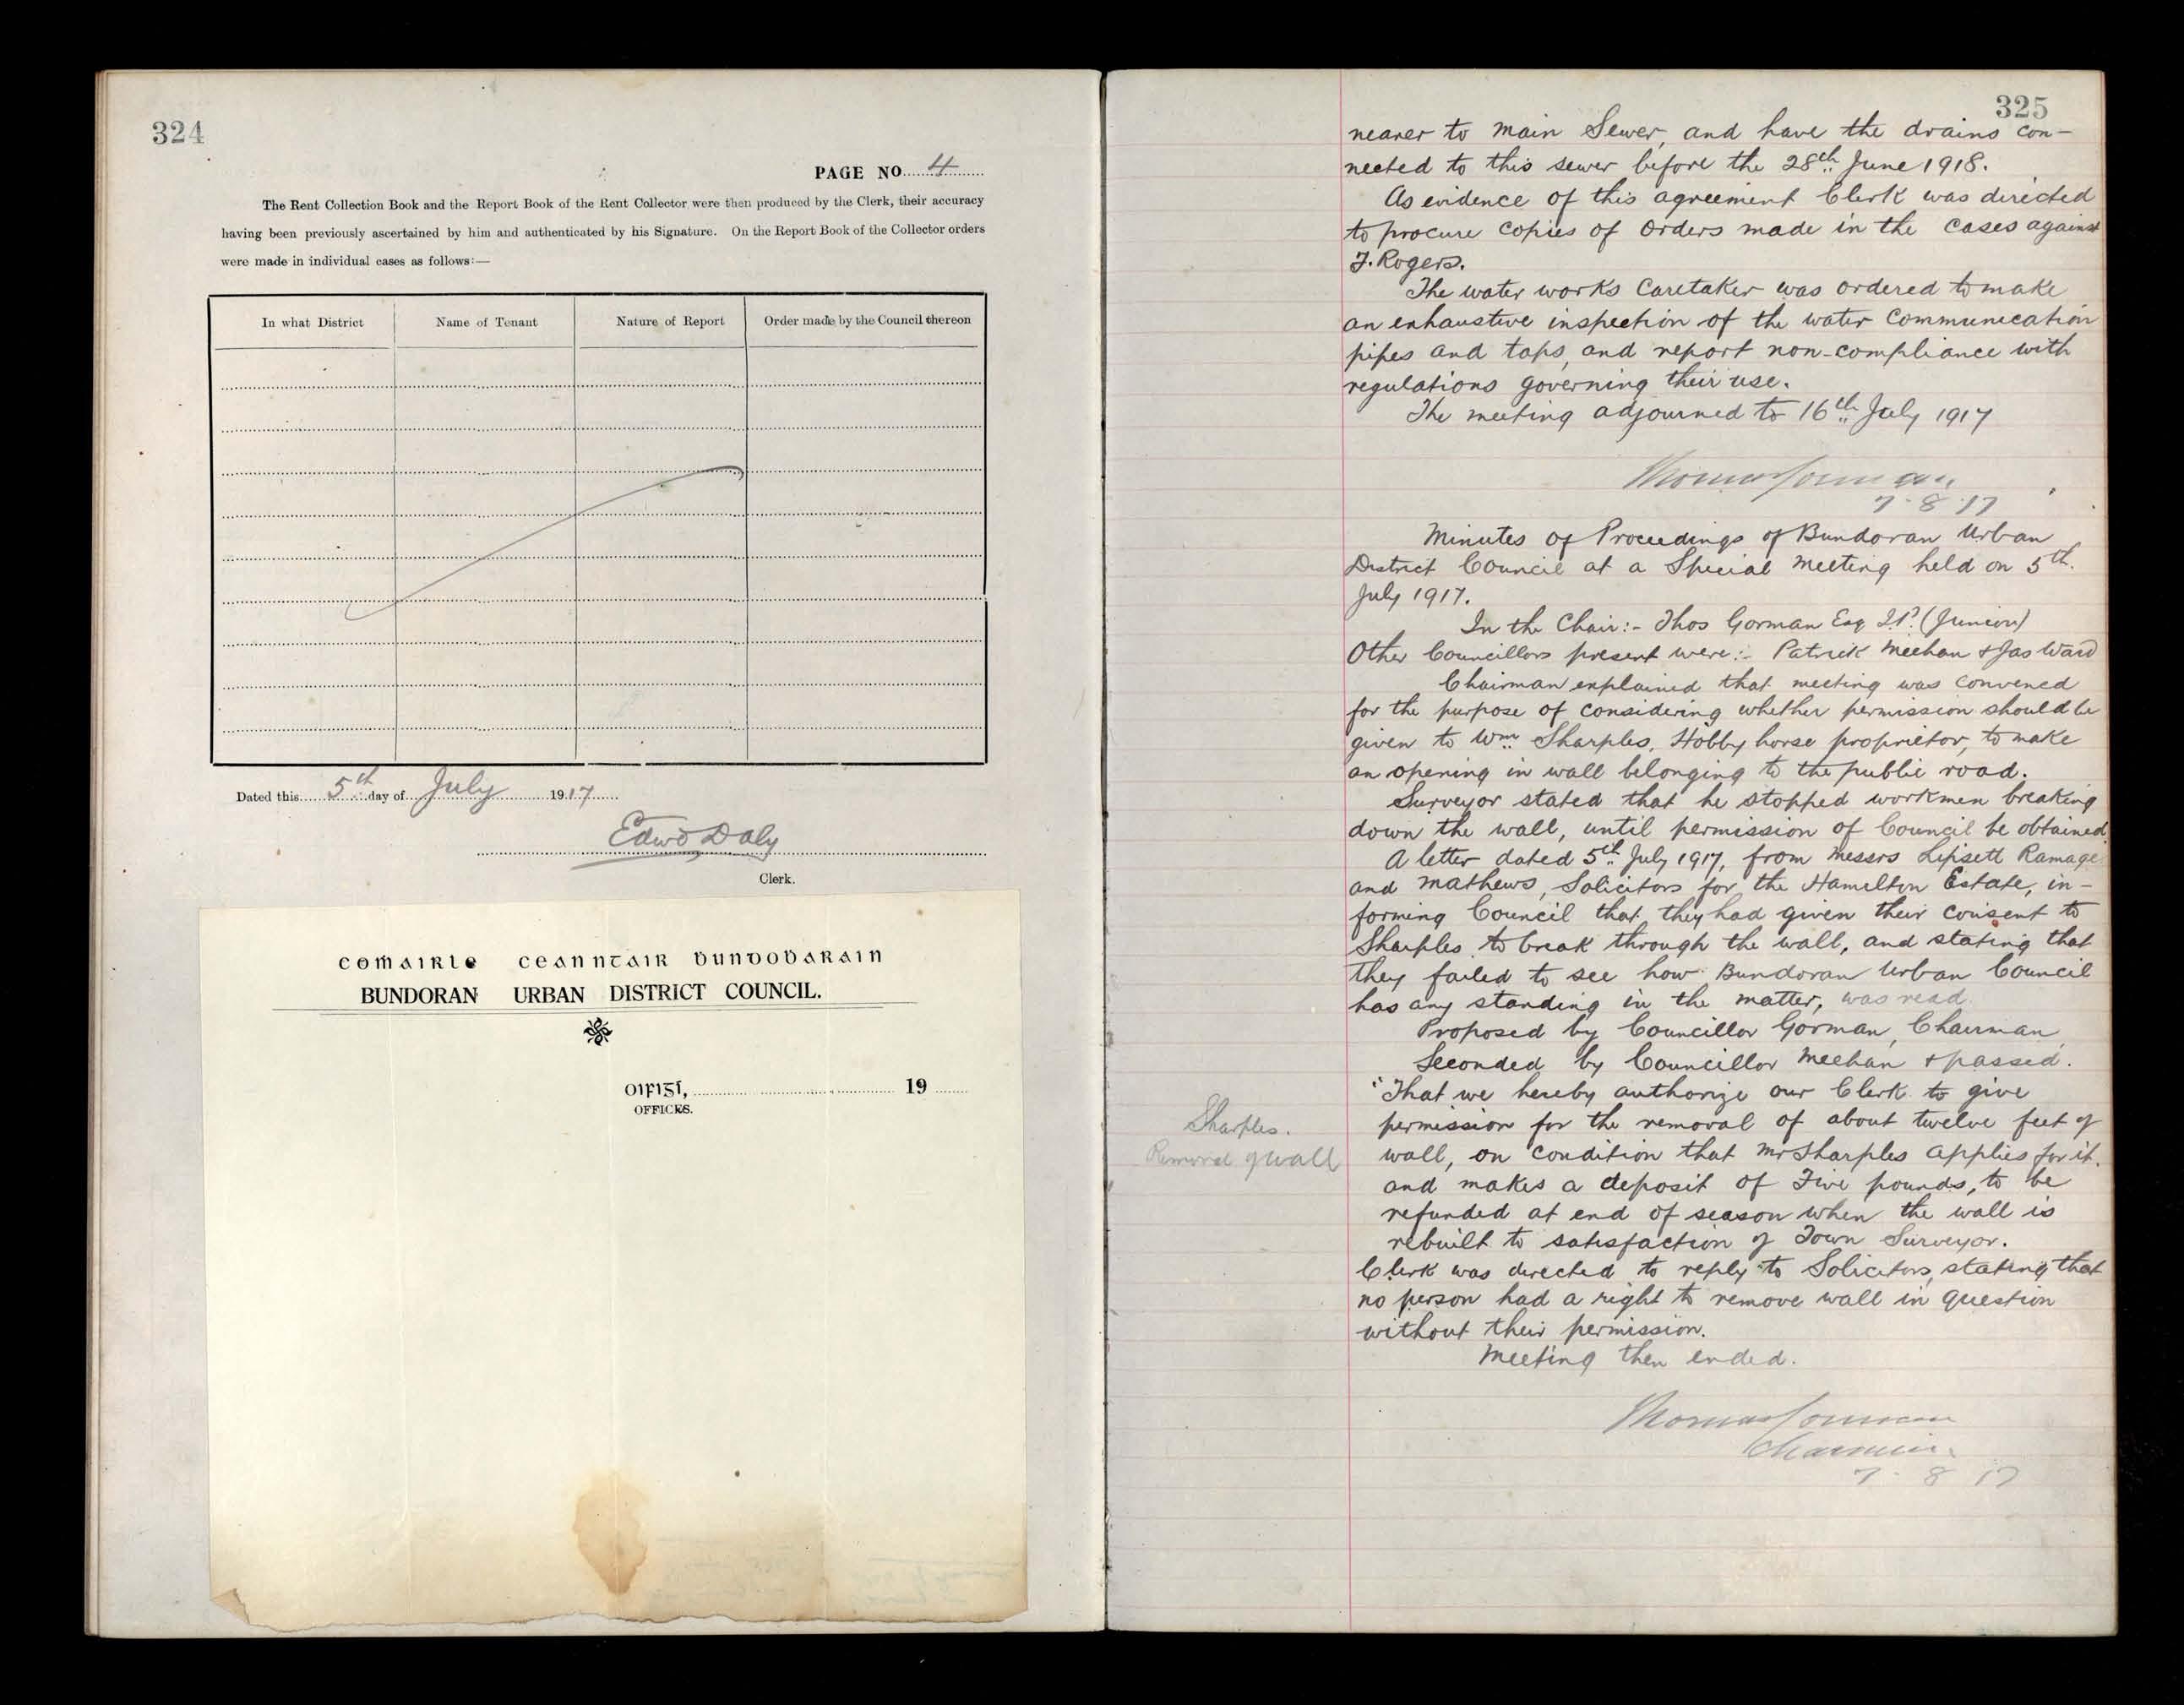 324
PAGE NO. 4
The Rent Collection Book and the Report Book of the Rent Collector were then produced by the Clerk, their accuracy
having been previously ascertained by him and authenticated by his Signature. On the Report Book of the Collector orders
were made in individual cases as follows:—
In what District Name of Tenant Nature of Report Order made by the Council thereon
Dated this 5th day of July 1917
Edwd Daly
Clerk.
comáirle ceanntair ḃundoḃarain
BUNDORAN URBAN DISTRICT COUNCIL.
oifigí, 19
OFFICES.
325
nearer to main Sewer, and have the drains con-
nected to this sewer before the 28th June 1918.
As evidence of this agreement Clerk was directed
to procure copies of Orders made in the cases against
F. Rogers.
The water works Caretaker was ordered to make
an exhaustive inspection of the water communication
pipes and taps, and report non-compliance with
regulations governing their use.
The meeting adjourned to 16th July 1917
Thomas Gorman
7.8.17
Minutes of Proceedings of Bundoran Urban
District Council at a Special Meeting held on 5th
July 1917.
In the Chair:- Thos Gorman Esq J.P. (Junior)
Other Councillors present were:- Patrick Meehan & Jas Ward
Chairman explained that meeting was convened
for the purpose of considering whether permission should be
given to Wm Sharples, Hobby horse proprietor, to make
an opening in wall belonging to the public road.
Surveyor stated that he stopped workmen breaking
down the wall, until permission of Council be obtained
A letter dated 5th July 1917, from Messrs Lipsett Ramage
and Mathews, Solicitors for the Hamilton Estate, in-
forming Council that they had given their consent to
Sharples to break through the wall, and stating that
they failed to see how Bundoran Urban Council
has any standing in the matter, was read.
Proposed by Councillor Gorman, Chairman,
Seconded by Councillor Meehan & passed.
"That we hereby authorize our Clerk to give
permission for the removal of about twelve feet of
Sharples.
Removal of wall
wall, on condition that Mr Sharples applies for it.
and makes a deposit of Five pounds, to be
refunded at end of season when the wall is
rebuilt to satisfaction of Town Surveyor.
Clerk was directed to reply to Solicitors, stating that
no person had a right to remove wall in question
without their permission.
Meeting then ended.
Thomas Gorman
Chairman
7.8.17